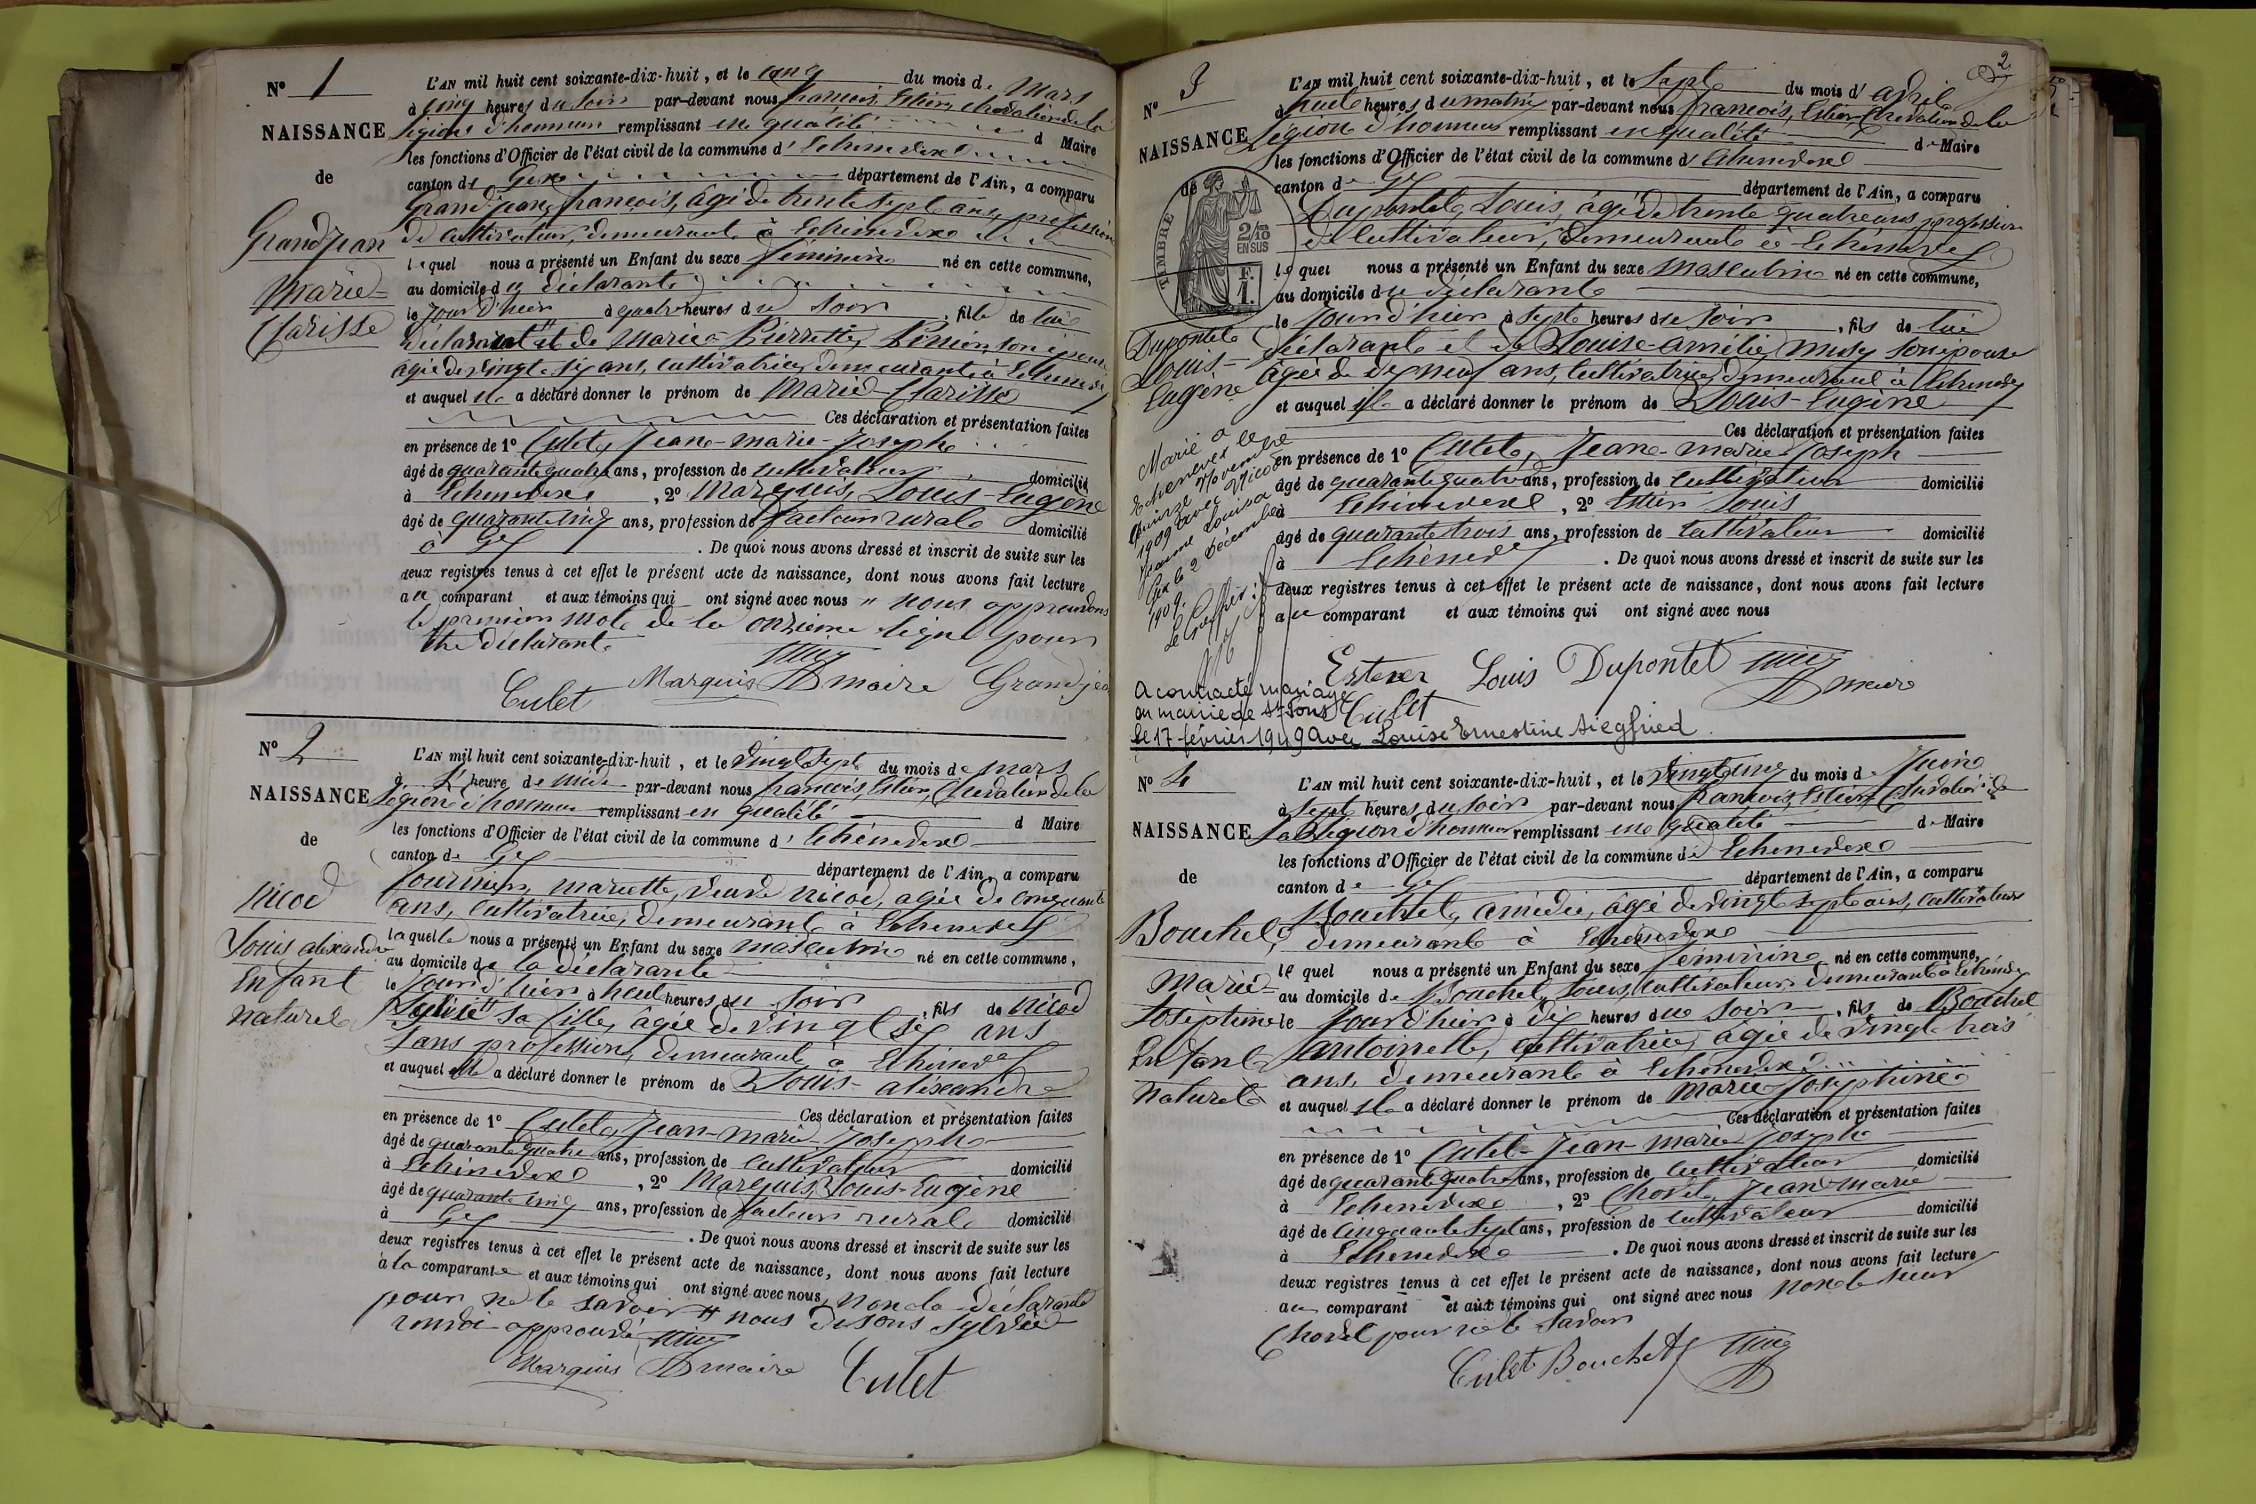 N° 1
NAISSANCE
de
Grandjean
Marie-
Clarisse
L'AN mil huit cent soixante-dix-huit, et le cinq du mois de Mars
à cinq heures du soir par-devant nous françois, Estier, chevalier de la
Légion d'honneur remplissant en qualité d Maire
les fonctions d'Officier de l'état civil de la commune d' Echenevex
canton de Gex département de l'Ain, a comparu
Grandjean, françois, âgé de trente sept ans, profession
de cultivateur, demeurant à Echenevex
lequel nous a présenté un Enfant du sexe féminin né en cette commune,
au domicile du déclarant
le jour d'hier à quatre heures du soir, fille de lui
déclarant et de Marie-Pierrette, son épouse
âgée de vingt six ans, cultivatrice, demeurant à Echenevex
et auquel il a déclaré donner le prénom de Marie-Clarisse
Ces déclaration et présentation faites
en présence de 1° Culet, Jean-marie-Joseph
âgé de quarante quatre ans, profession de cultivateur domicilié
à Echenevex, 2° Marquis, Louis-Eugène
âgé de quarante cinq ans, profession de facteur rural domicilié
à Gex. De quoi nous avons dressé et inscrit de suite sur les
deux registres tenus à cet effet le présent acte de naissance, dont nous avons fait lecture
au comparant et aux témoins qui ont signé avec nous " nous approuvons
le premier mot de la onzième ligne pour
déclarant
Culet Marquis maire Grandjean
N° 2
NAISSANCE
de
Nicod
Louis alexandre
Enfant
naturel
L'AN mil huit cent soixante-dix-huit, et le vingt sept du mois de mars
à heure de midi par-devant nous francois, Estier, Chevalier de la
Légion d'honneur remplissant en qualité d Maire
les fonctions d'Officier de l'état civil de la commune d' Echenevex
canton de Gex département de l'Ain, a comparu
fournier, mariette, veuve nicod, agée de cinquante
ans, cultivatrice, demeurant à Echenevex
laquelle nous a présenté un Enfant du sexe masculin né en cette commune,
au domicile de la déclarante
le jour d'hier à heures du soir, fils de nicod
sa fille, âgée de vingt six ans
sans profession, demeurant à Echenevex
et auquel elle a déclaré donner le prénom de Louis-alexandre
Ces déclaration et présentation faites
en présence de 1° Culet, Jean-marie Joseph
âgé de quarante quatre ans, profession de cultivateur domicilié
à Echenevex, 2° Marquis, Louis-Eugène
âgé de quarante cinq ans, profession de facteur rural domicilié
à Gex. De quoi nous avons dressé et inscrit de suite sur les
deux registres tenus à cet effet le présent acte de naissance, dont nous avons fait lecture
à la comparante et aux témoins qui ont signé avec nous, non la déclarante
pour ne le savoir nous disons Sylvie
approuvé
Marquis maire Culet
2
N° 3
NAISSANCE
de
TIMBRE
2/10
EN SUS
F.
1.
Dupontet
Louis-
Eugène
L'AN mil huit cent soixante-dix-huit, et le Sept du mois d' avril
à huit heures du matin par-devant nous françois, Estier, Chevalier de la
Légion d'honneur remplissant en qualité de Maire
les fonctions d'Officier de l'état civil de la commune d' Echenevex
canton de Gex département de l'Ain, a comparu
Dupontet, Louis, âgé de trente quatre ans, profession
de cultivateur, demeurant à Echenevex
lequel nous a présenté un Enfant du sexe masculin né en cette commune,
au domicile du déclarant
le jour d'hier à sept heures du soir, fils de lui
déclarant et de Louise-amélie, son épouse
âgée de dix neuf ans, cultivatrice, demeurant à Echenevex
et auquel il a déclaré donner le prénom de Louis-Eugène
Ces déclaration et présentation faites
en présence de 1° Culet, Jean-marie-Joseph
âgé de quarante quatre ans, profession de cultivateur domicilié
à Echenevex, 2° Estier Louis
âgé de quarante trois ans, profession de cultivateur domicilié
à Echenevex. De quoi nous avons dressé et inscrit de suite sur les
deux registres tenus à cet effet le présent acte de naissance, dont nous avons fait lecture
au comparant et aux témoins qui ont signé avec nous
Marié à
Echenevex le
quinze novembre
1909 avec Nicod
Jeanne Louisa
Gex le 2 décembre
1909.
Le Greffier:
Estier Louis Dupontet maire
Culet
A contracté mariage
en mairie de St Fons
le 17 février 1949 avec Louise Ernestine Siegfried.
N° 4
NAISSANCE
de
Bouchet
Marie-
Joséphine
Enfant
Naturel
L'AN mil huit cent soixante-dix-huit, et le vingt cinq du mois de Juin
à sept heures du soir par-devant nous françois, Estier, Chevalier de
La Légion d'honneur remplissant en qualité de Maire
les fonctions d'Officier de l'état civil de la commune d' Echenevex
canton de Gex département de l'Ain, a comparu
Bouchet, amédée, âgé de vingt sept ans, cultivateur
demeurant à Echenevex
lequel nous a présenté un Enfant du sexe féminin né en cette commune,
au domicile de Bouchet, Louis, cultivateur demeurant à Echenevex
le jour d'hier à dix heures du soir, fils de Bouchet
antoinette, cultivatrice, âgée de vingt trois
ans, demeurant à Echenevex
et auquel il a déclaré donner le prénom de Marie-Joséphine
Ces déclaration et présentation faites
en présence de 1° Culet-Jean-marie Joseph
âgé de quarante quatre ans, profession de cultivateur domicilié
à Echenevex, 2° Jean marie
âgé de cinquante sept ans, profession de cultivateur domicilié
à Echenevex. De quoi nous avons dressé et inscrit de suite sur les
deux registres tenus à cet effet le présent acte de naissance, dont nous avons fait lecture
au comparant et aux témoins qui ont signé avec nous non le sieur
pour ne le savoir
Culet Bouchet